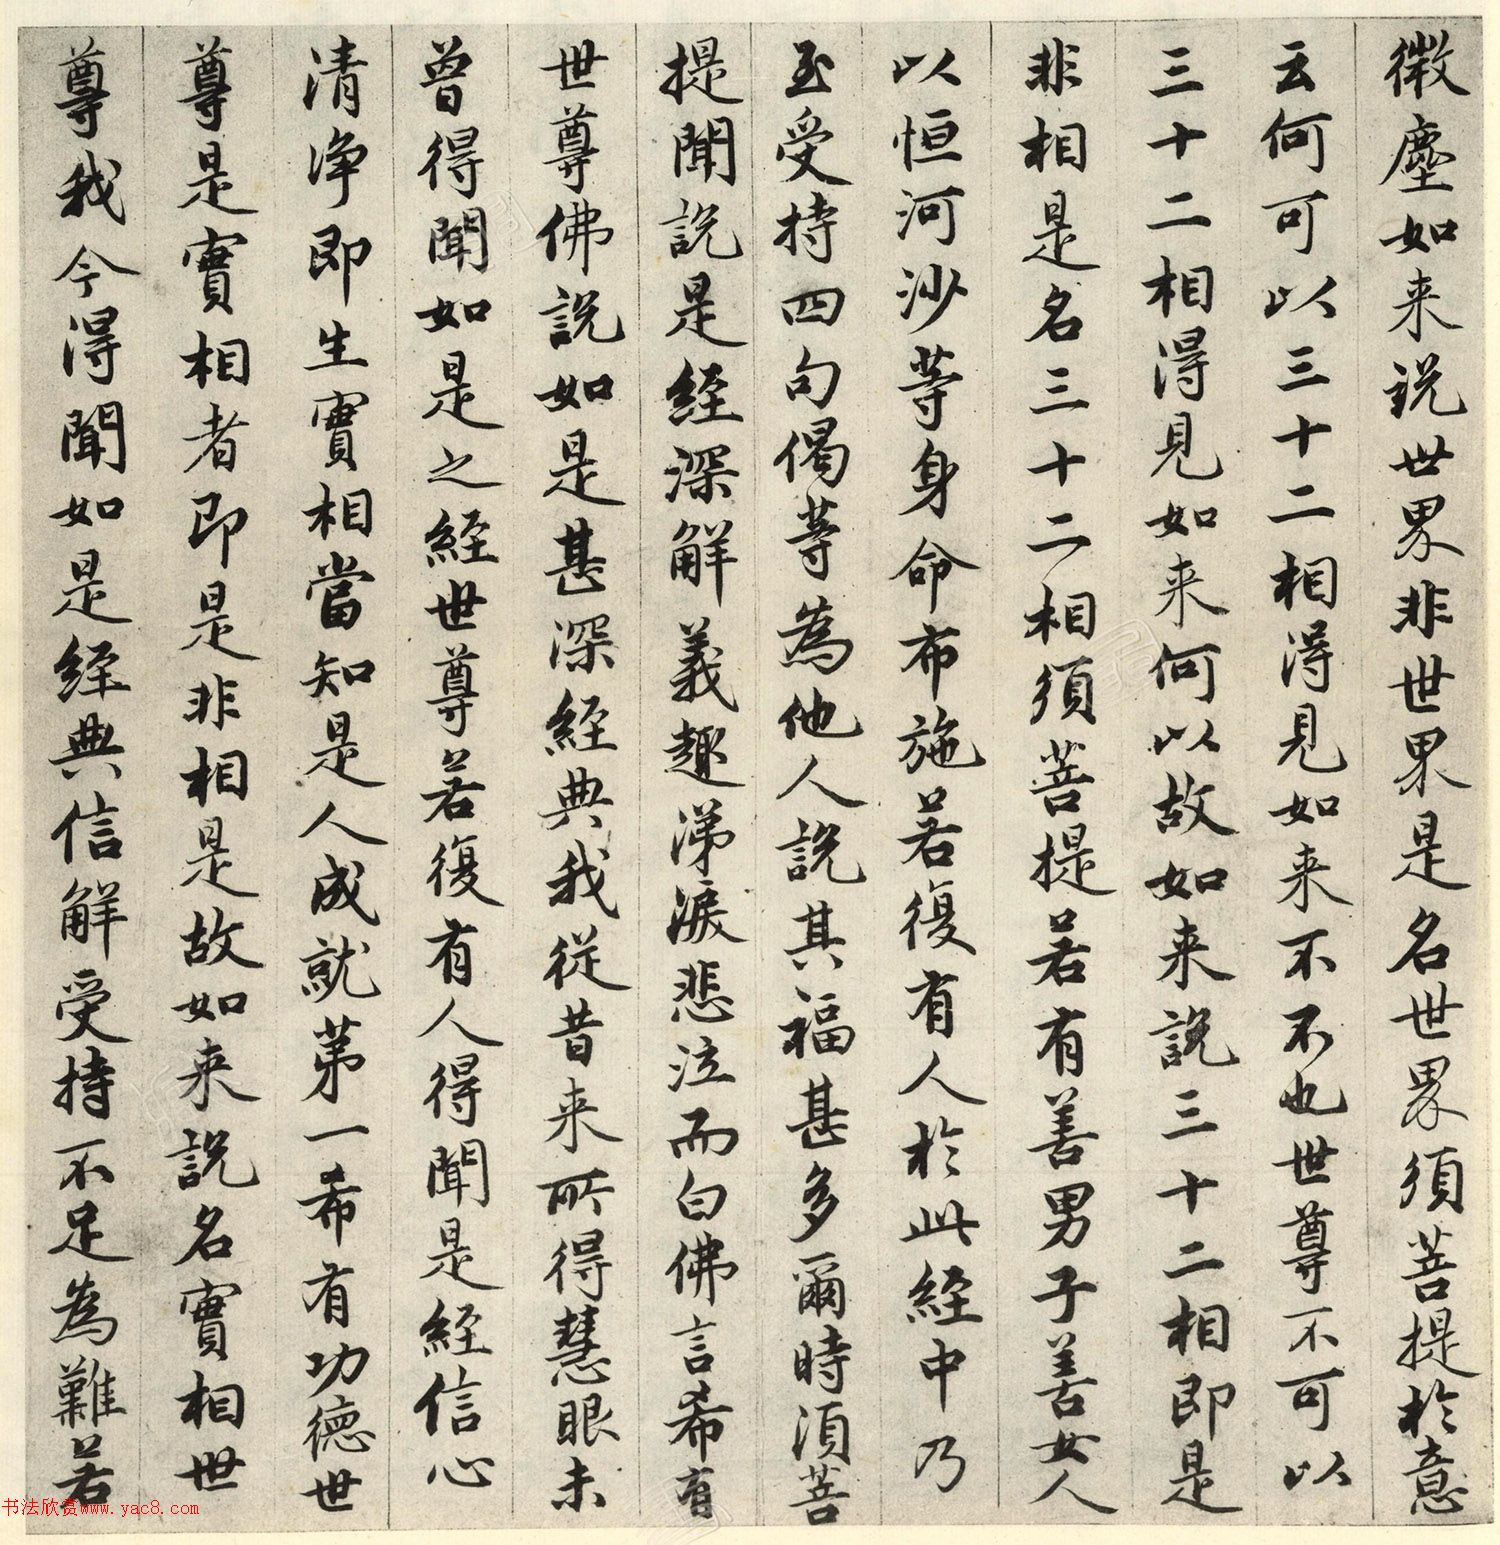 微塵如来説世界非世界是名世界須菩提於意
云何可以三十二相得見如来不不也世尊不可以
三十二相得見如来何以故如来説三十二相即是
非相是名三十二相須菩提若有善男子善女人
以恒河沙等身命布施若復有人於此經中乃
至受持四句偈等為他人説其福甚多爾時須菩
提聞説是經深解義趣涕淚悲泣而白佛言希有
世尊佛説如是甚深經典我從昔来所得慧眼未
曾得聞如是之經世尊若復有人得聞是經信心
清浄即生實相當知是人成就第一希有功德世
尊是實相者即是非相是故如来説名實相世
尊我今得聞如是經典信解受持不足為難若
书法欣赏www.yac8.com